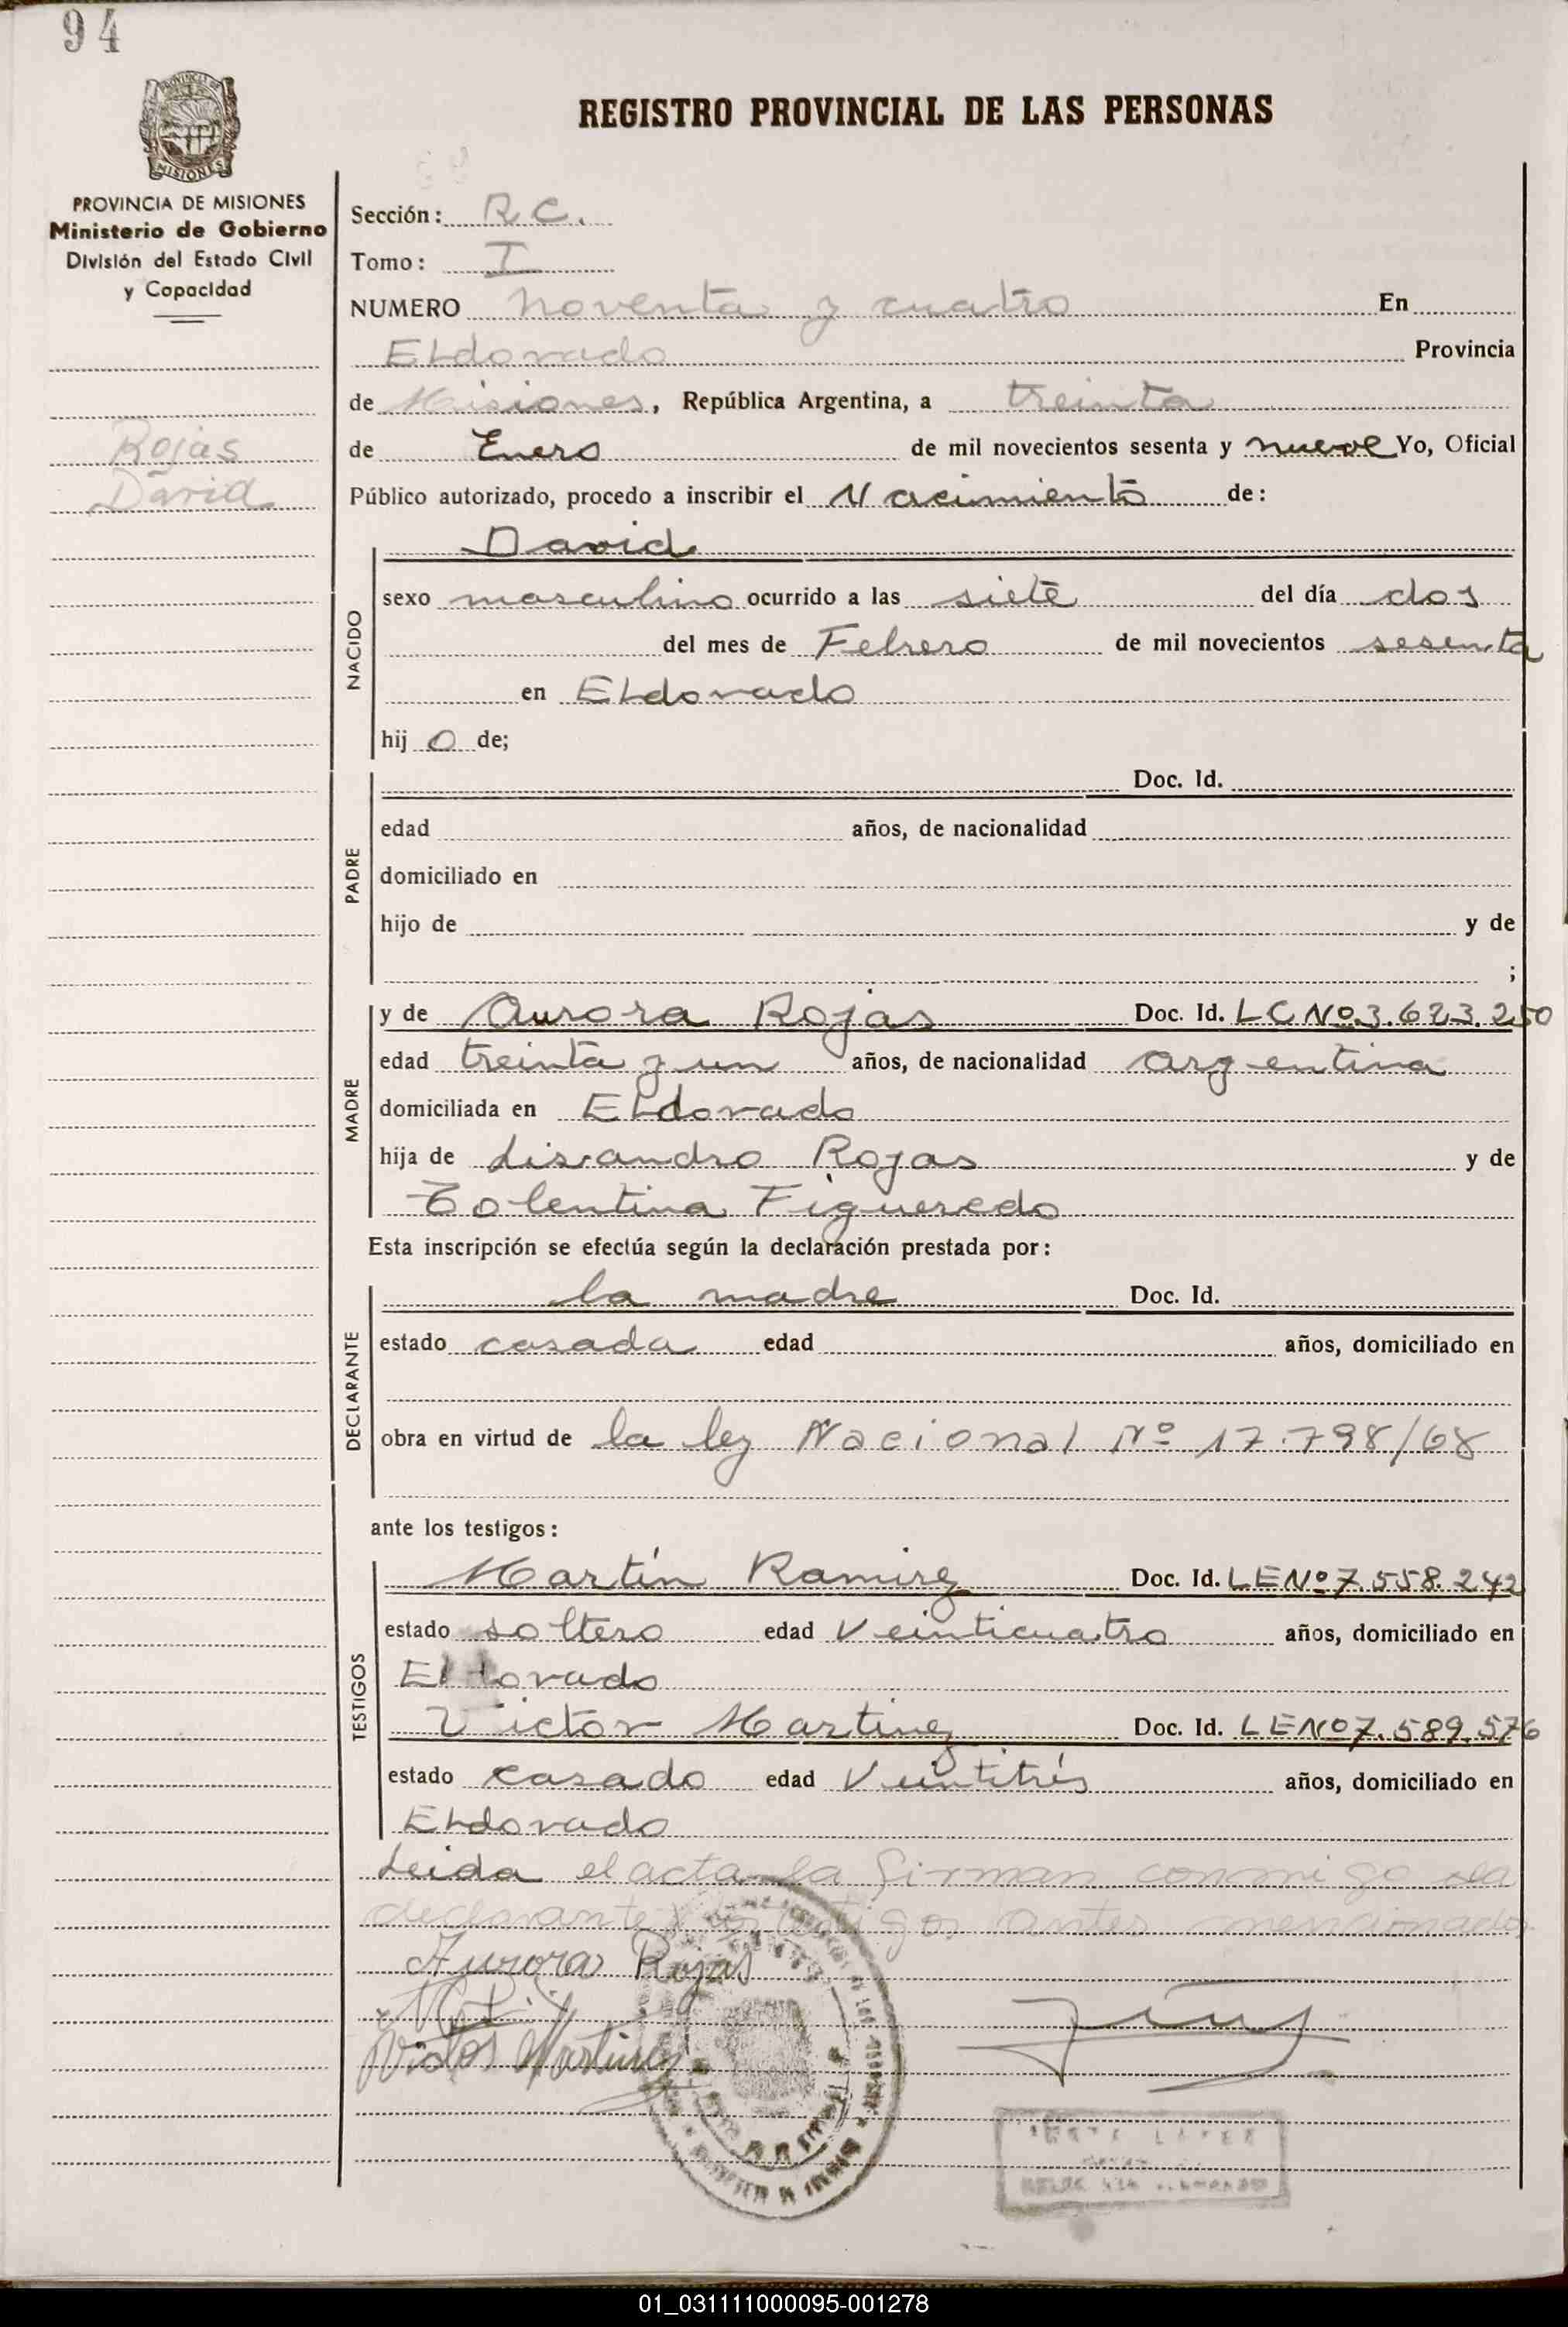 94
PROVINCIA DE MISIONES
Ministerio de Gobierno
División del Estado Civil
y Capacidad
Rojas
David
REGISTRO PROVINCIAL DE LAS PERSONAS
Sección: R.C.
Tomo: I
NUMERO noventa y cuatro En
ELdorado Provincia
de Misiones, República Argentina, a treinta
de Enero de mil novecientos sesenta y nueve Yo, Oficial
Público autorizado, procedo a inscribir el Nacimiento de:
NACIDO
David
sexo masculino ocurrido a las siete del día dos
del mes de Febrero de mil novecientos sesenta
en ELdorado
hij o de;
PADRE
Doc. Id.
edad años, de nacionalidad
domiciliado en
hijo de y de
;
MADRE
y de Aurora Rojas Doc. Id. LC Nº 3.623.250
edad treinta y un años, de nacionalidad argentina
domiciliada en ELdorado
hija de Lisandro Rojas y de
Tolentina Figueredo
Esta inscripción se efectúa según la declaración prestada por:
DECLARANTE
la madre Doc. Id.
estado casada edad años, domiciliado en
obra en virtud de la ley Nacional Nº 17.798/68
ante los testigos:
TESTIGOS
Martín Ramirez Doc. Id. LE Nº 7.558.242
estado soltero edad Veinticuatro años, domiciliado en
Eldorado
Victor Martinez Doc. Id. LE Nº 7.589.576
estado casado edad Veintitrés años, domiciliado en
ELdorado
Leida el acta la firman conmigo la
declarante y los testigos antes mencionados.
Aurora Rojas
Victor Martinez
01_031111000095-001278